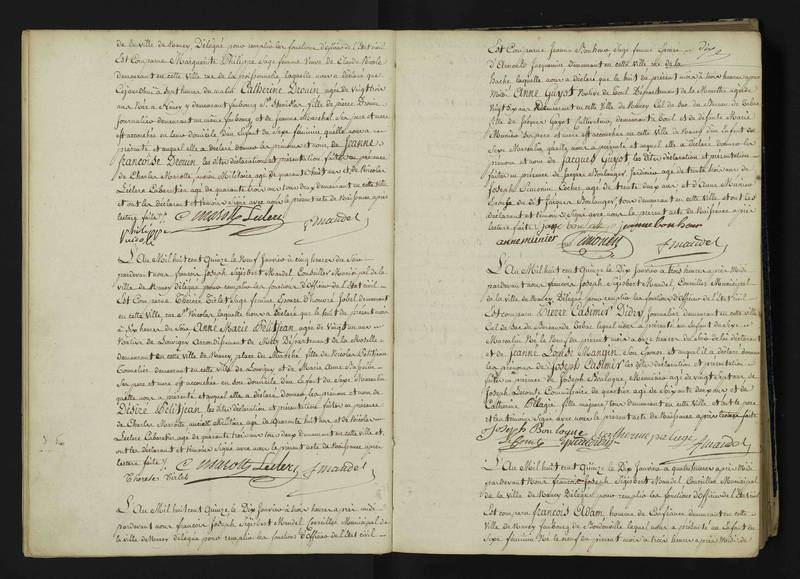 de la ville de Nancy, Délégué pour remplir les fonctions d'officier de l'Etat civil
Est Comparue Marguerite Philippe Sage femme Veuve de Claude Nicole
demeurant en cette Ville rue de la poissonnerie, laquelle nous a déclaré que
Cejourd'huy sept heures du matin Catherine Drouin agée de Vingt trois
ans Née à Nancy y demeurant faubourg St Stanislas fille de pierre Drouin
Journalier demeurant au même faubourg et de jeanne Marchal Ses père et mère
est accouchée en leur domicile d'un Enfant de Sexe féminin quelle nous a
présenté et auquel elle a déclaré donner les prénoms et nom, de Jeanne
francoise Drouin, les dites déclaration et présentation faites en présence
de Charles Marotte, ancien Militaire agé de quarante huit ans et de Nicolas
Leclerc Cabaretier agé de quarante trois ans tous deux demeurant en cette ville
et ont les déclarante et témoins Signé avec nous le présent acte de Naissance après
lecture faite
C Marotte Leclerc f mandel
Philippe
L'An Mil huit cent Quinze le Neuf Janvier à cinq heures du Soir
pardevant nous françois Joseph Sigisbert Mandel Conseiller Municipal de la
ville de Nancy Délégué pour remplir les fonctions d'officier de l'Etat civil.
Est Comparue Thérèse Tirlet Sage femme Epouse d'honoré Jobel demeurant
en cette Ville, rue St Nicolas, laquelle nous a déclaré que le huit du présent mois
à Six heures du Soir Anne Marie Petitjean agée de Vingt un ans
Native de Louvigny arrondissement de Metz Département de la Moselle
demeurant en cette Ville de Nancy, place du Marché fille de Nicolas Petitjean
Tonnelier demeurant en cette Ville de Louvigny et de Marie Anne
Ses père et mère est accouchée en son domicile d'un Enfant de Sexe Masculin
quelle nous a présenté et auquel elle a déclaré donner les prénom et nom de
Désiré Petitjean, les dites déclaration et présentation faites en présence
de Charles Marotte ancien Militaire agé de Quarante huit ans et de Nicolas
Leclerc Cabaretier agé de quarante trois ans tous deux demeurant en cette ville, et
ont les déclarante et témoins Signé avec nous le présent acte de Naissance après
lecture faite
C Marotte Leclerc f mandel
Thérèse Tirlet
L'An Mil huit cent Quinze le Dix Janvier à trois heures après midi
pardevant nous françois Joseph Sigisbert Mandel, Conseiller Municipal de
la ville de Nancy délégué pour remplir les fonctions d'officier de l'Etat civil
Est Comparue Jeanne Bonheur, Sage femme Epouse
d'Anicette Jacquemin demeurant en cette Ville rue de la
hache laquelle nous a déclaré que le huit du présent mois à heures après
Midi Anne Guyot Native de Toul Département de la Meurthe agée de
Vingt six ans demeurant en cette Ville de Nancy Cul de Sac du Bureau de Tabac
fille de Jacques Guyot Cultivateur, demeurant à Toul et de défunte Marie
Ses père et mère est accouchée en cette Ville de Nancy d'un Enfant de
Sexe Masculin quelle nous a présenté et auquel elle a déclaré donner les
prénom et nom de Jacques Guyot, les dites déclaration et présentation
faites en présence de Jacques Boulanger Jardinier agé de trente trois ans de
Joseph Simonin Cocher agé de trente deux ans et d'Anne Munier
Epouse du dit Jacques Boulanger tous demeurant en cette Ville, et ont les
déclarante et témoins Signé avec nous le présent acte de Naissance après
lecture faite jeanne bonheur
anne munier Simonin f mandel
L'An Mil huit cent Quinze le Dix Janvier à trois heures après Midi
pardevant nous françois Joseph Sigisbert Mandel, Conseiller Municipal
de la Ville de Nancy, Délégué pour remplir les fonctions d'officier de l'Etat civil
Est comparu Pierre Casimir Didry Journalier demeurant en cette Ville
Cul de Sac du Bureau de Tabac lequel nous a présenté un Enfant de Sexe
Masculin Né le Neuf du présent mois à onze heures du Soir de lui déclarant
et de Jeanne Louise Mangin Son Epouse et auquel il a déclaré donner
les prénoms de Joseph Casimir les dites déclaration et présentation
faites en présence de Joseph Boulogne, Menuisier agé de vingt sept ans, de
Joseph Lecomte Commissaire de quartier agé de Soixante deux ans et de
Catherine Pelagie fille majeure tous demeurant en cette Ville et ont le père
et les témoins Signé avec nous le présent acte de Naissance après lecture faite
Joseph Boulogne
Le Comte catherine pelagie f mandel
L'An Mil huit cent Quinze le Dix Janvier à quatre heures après Midi
pardevant Nous françois Joseph Sigisbert Mandel, Conseiller Municipal
de la Ville de Nancy Délégué pour remplir les fonctions d'officier de l'Etat civil
Est comparu françois Adam homme de Confiance demeurant en cette
Ville de Nancy faubourg de Boudonville lequel nous a présenté un Enfant du
Sexe féminin Né le neuf du présent mois à trois heures après Midi de